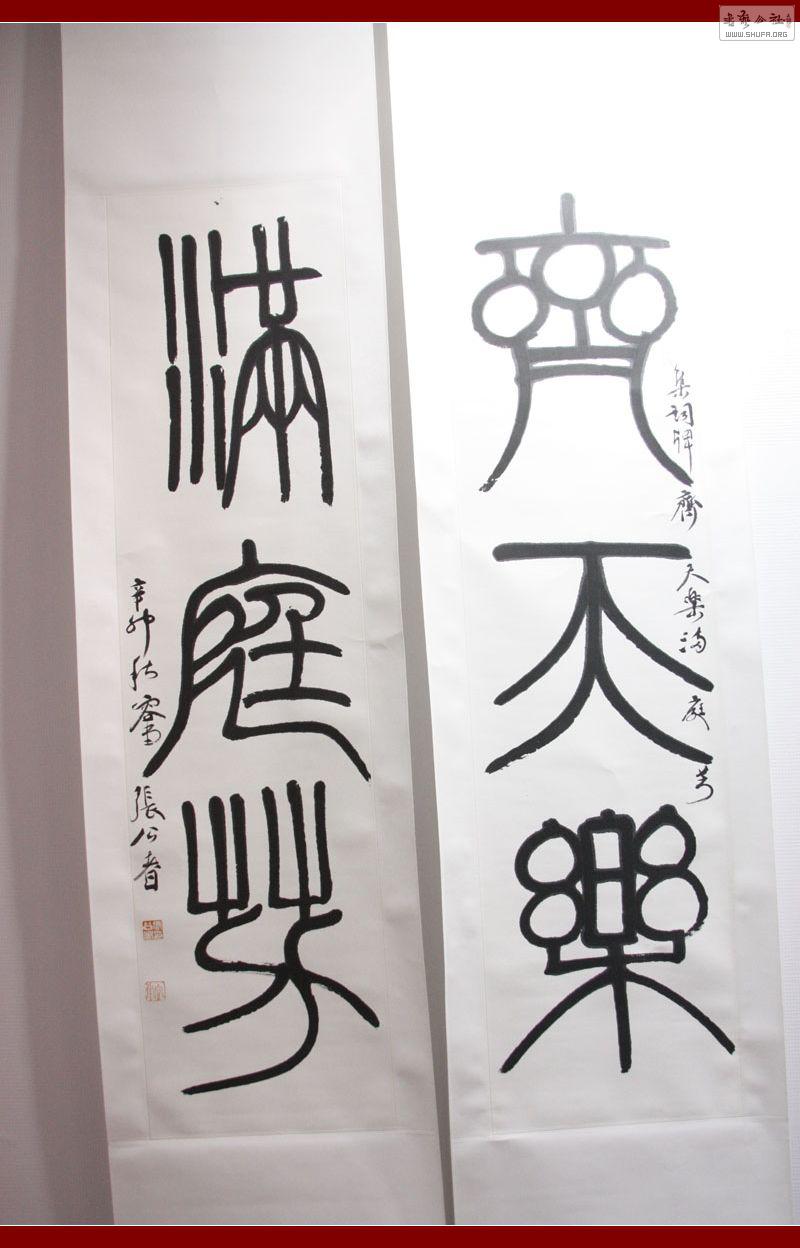 齊天樂
集詞牌齊天樂滿庭芳
滿庭芳
辛卯秋
張公者
WWW.SHUFA.ORG